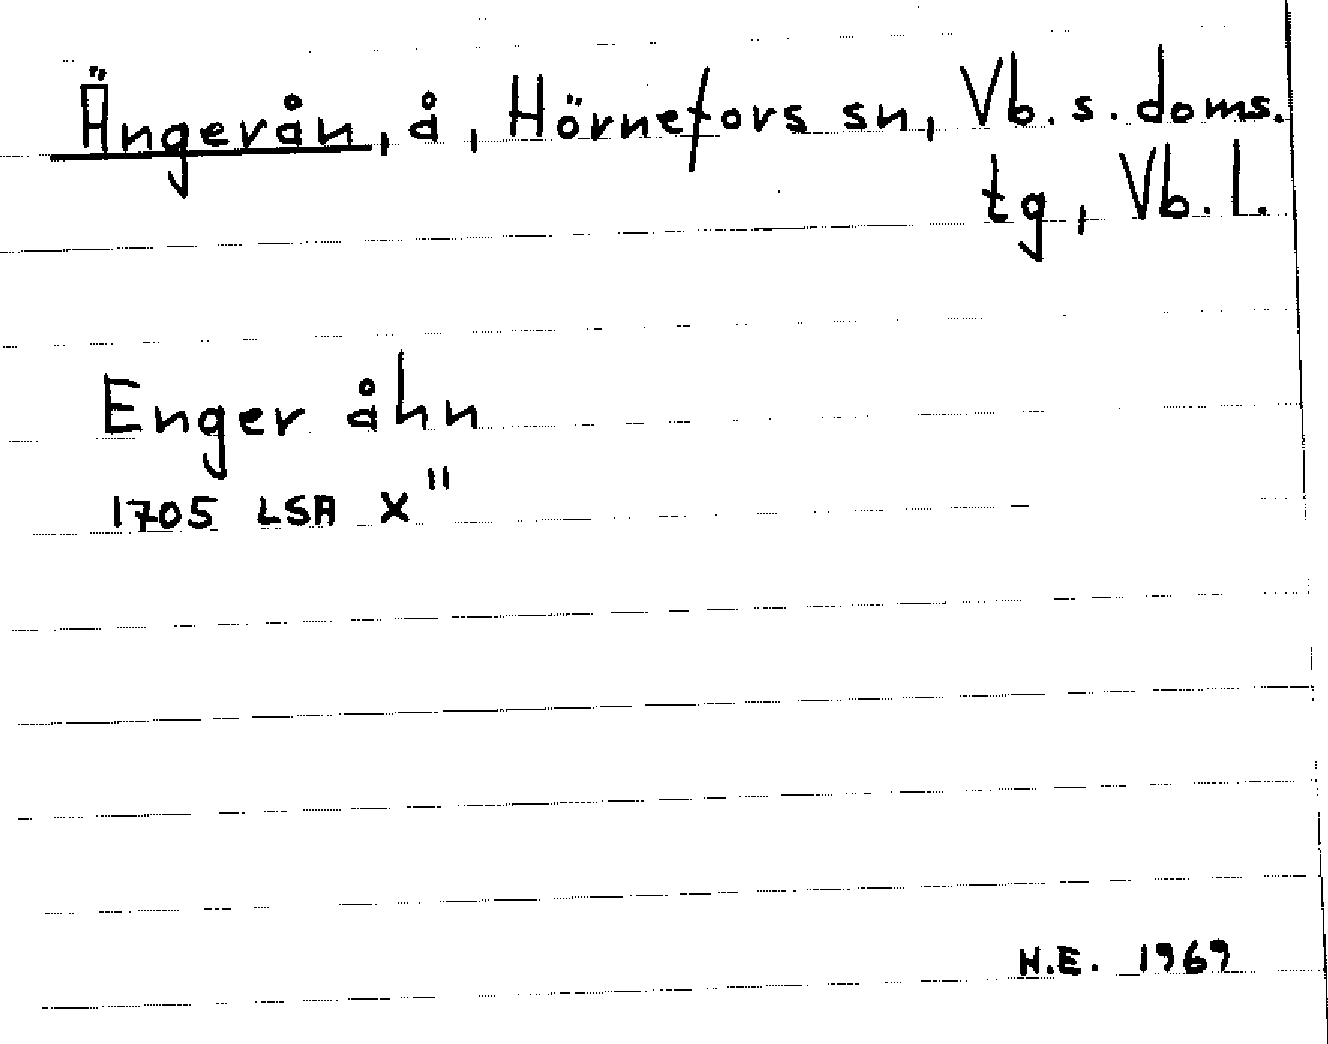 Ängerån, å, Hörnefors sn, Vb. s. doms.
tg, Vb. l.
Enger åhn
1705 LSA X"
H.E. 1969